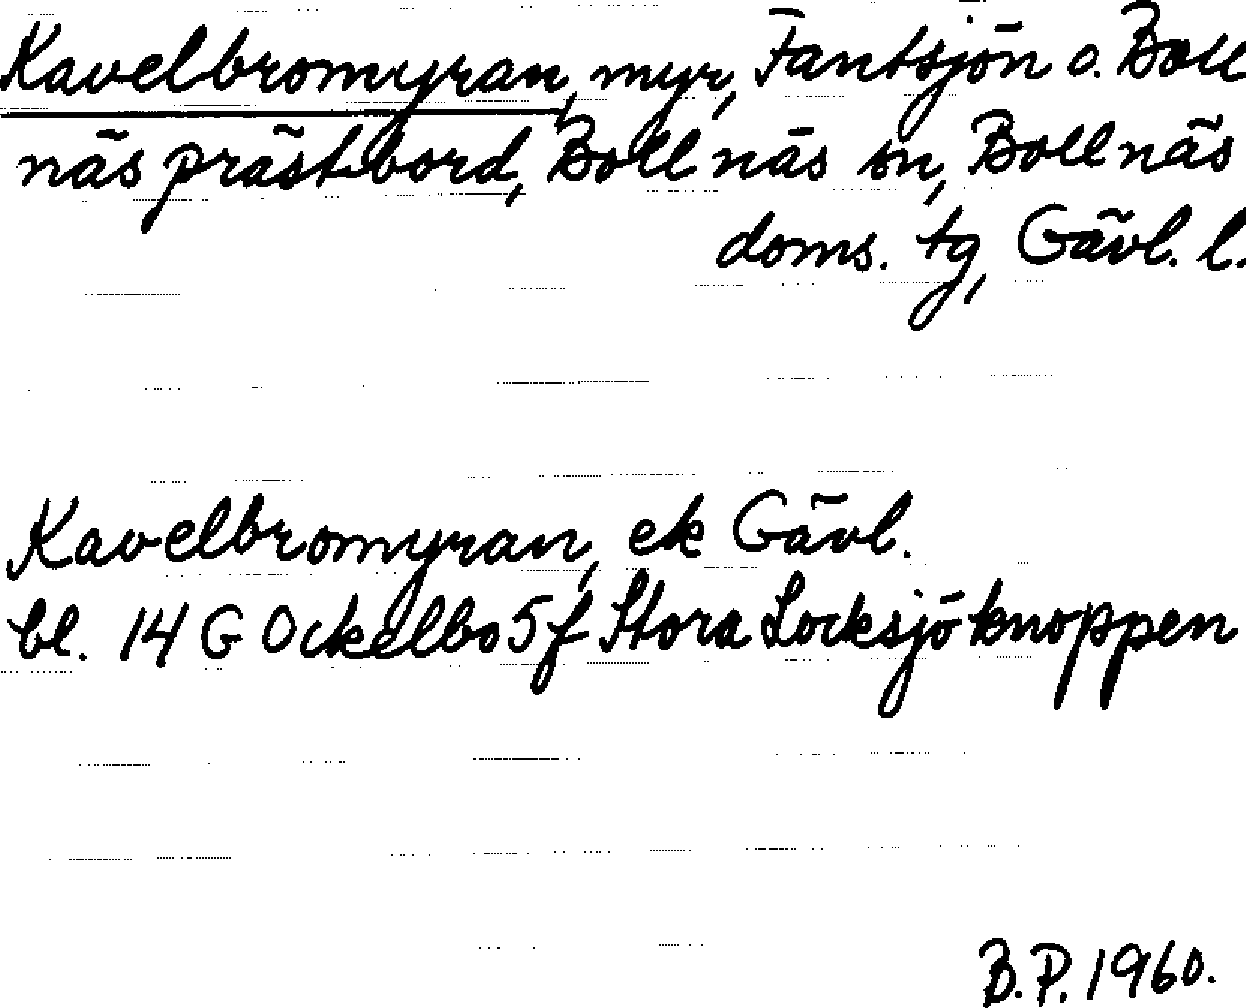 Kavelbromyran, myr, Fantsjön o. Boll
näs prästbord, Bollnäs sn, Bollnäs
doms. tg, Gävl. l.
Kavelbromyran, ek Gävl.
bl. 14 G Ockelbo 5 f Stora Locksjöknoppen
B.P. 1960.